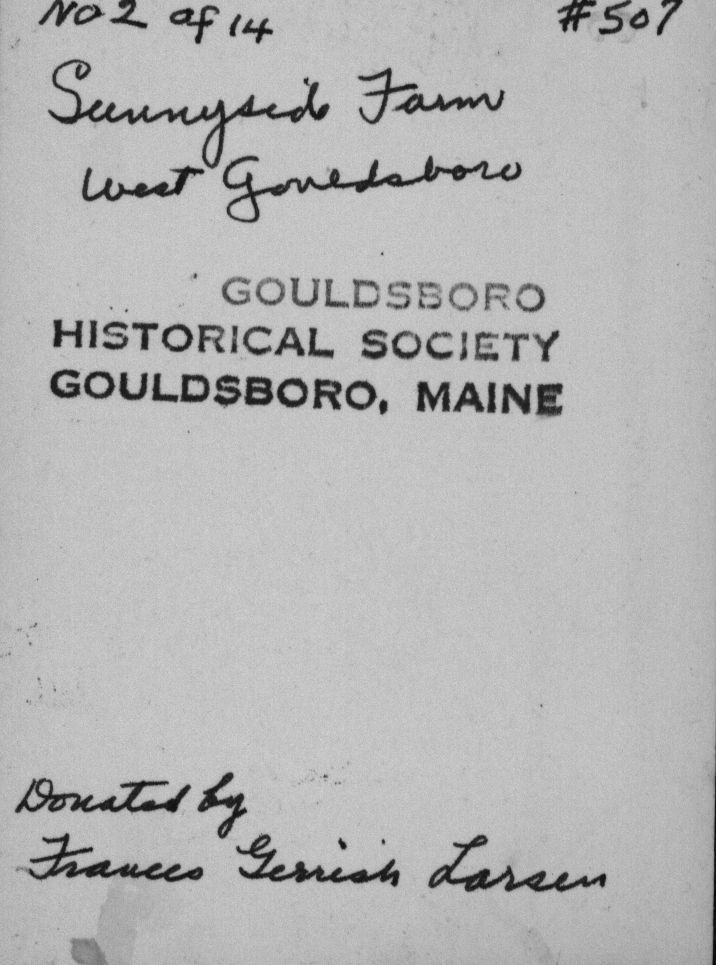 No 2 of 14 #507
Sunnyside Farm
West Gouldsboro
GOULDSBORO
HISTORICAL SOCIETY
GOULDSBORO, MAINE
Donated by
Frances Gerrish Larsen